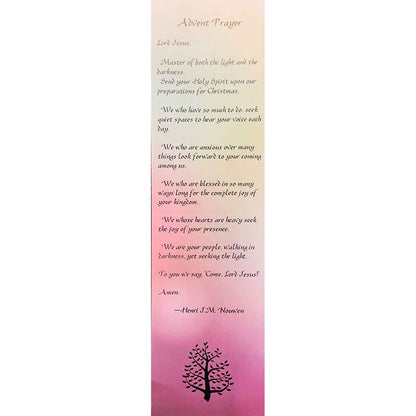 Advent Prayer
Lord Jesus,
Master of both the light and the
darkness,
Send your Holy Spirit upon our
preparations for Christmas.
We who have so much to do, seek
quiet spaces to hear your voice each
day.
We who are anxious over many
things look forward to your coming
among us.
We who are blessed in so many
ways long for the complete joy of
your kingdom.
We whose hearts are heavy seek
the joy of your presence.
We are your people, walking in
darkness, yet seeking the light.
To you we say, "Come, Lord Jesus!"
Amen.
—Henri J.M. Nouwen